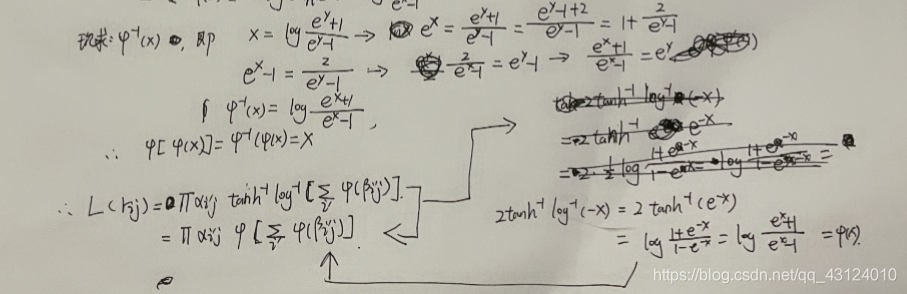 现求: φ⁻¹(x), 即 x = log (e^y+1)/(e^y-1) → e^x = (e^y+1)/(e^y-1) = (e^y-1+2)/(e^y-1) = 1 + 2/(e^y-1)
e^x-1 = 2/(e^y-1) → 2/(e^x-1) = e^y-1 → (e^x+1)/(e^x-1) = e^y
φ⁻¹(x) = log (e^x+1)/(e^x-1),
∴ φ[φ(x)] = φ⁻¹(φ(x) = X
∴ L(rij) = Παij tanh⁻¹ log⁻¹[Σ φ(βij)].
= Παij φ[Σ φ(βij)]
2tanh⁻¹ log⁻¹(-x)
= 2tanh⁻¹ e^-x
2tanh⁻¹ log⁻¹(-x) = 2 tanh⁻¹(e^-x)
= log (1+e^-x)/(1-e^-x) = log (e^x+1)/(e^x-1) = φ(x).
https://blog.csdn.net/qq_43124010